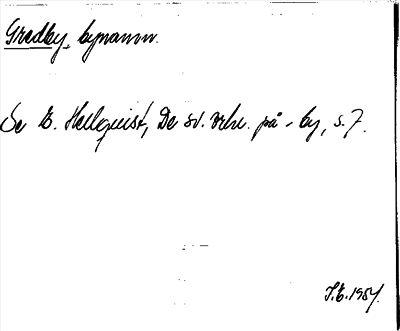 Gredby, bynamn.
Se E. Hellquist, De sv. ortn. på -by, s. 7.
J.E. 1954.